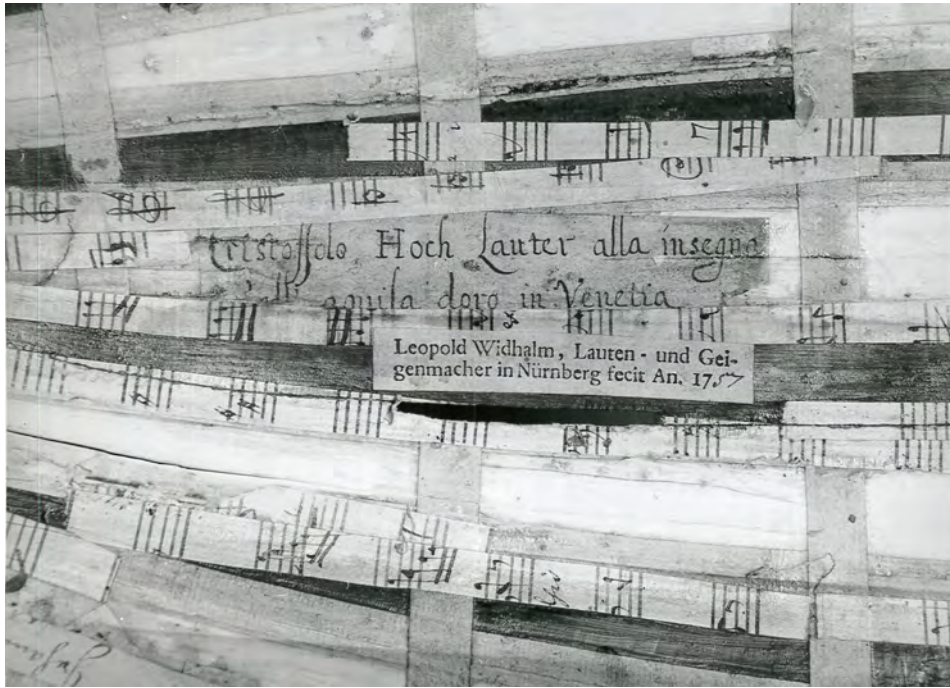 Cristoffolo Hoch Lauter alla insegna
dell' aquila doro in Venetia
Leopold Widhalm, Lauten - und Gei-
genmacher in Nürnberg fecit An. 1757